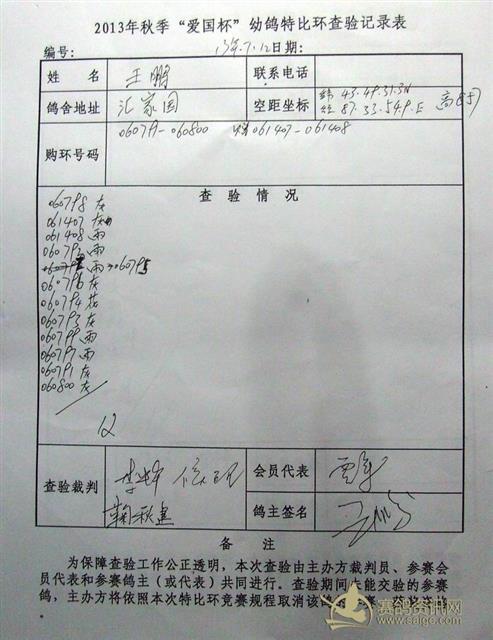 2013年秋季“爱国杯”幼鸽特比环查验记录表
编号: 13年.7.12日期:
姓名 王鹏 联系电话
鸽舍地址 汇家园 空距坐标 纬 43.49.31.3N 经 87.33.54.9.E 高857
购环号码 060791-060800 061407-061408
查验情况
060798 灰
061407 灰
061408 雨
060792 雨
雨 060795
060796 灰
060794 花
060793 灰
060799 雨
060797 雨
060791 灰
060800 灰
12
查验裁判 会员代表
鞠秋建 鸽主签名
备注
为保障查验工作公正透明，本次查验由主办方裁判员、参赛会
员代表和参赛鸽主（或代表）共同进行。查验期间未能交验的参赛
鸽，主办方将依照本次特比环竞赛规程取消该鸽
赛鸽资讯网
www.saige.com